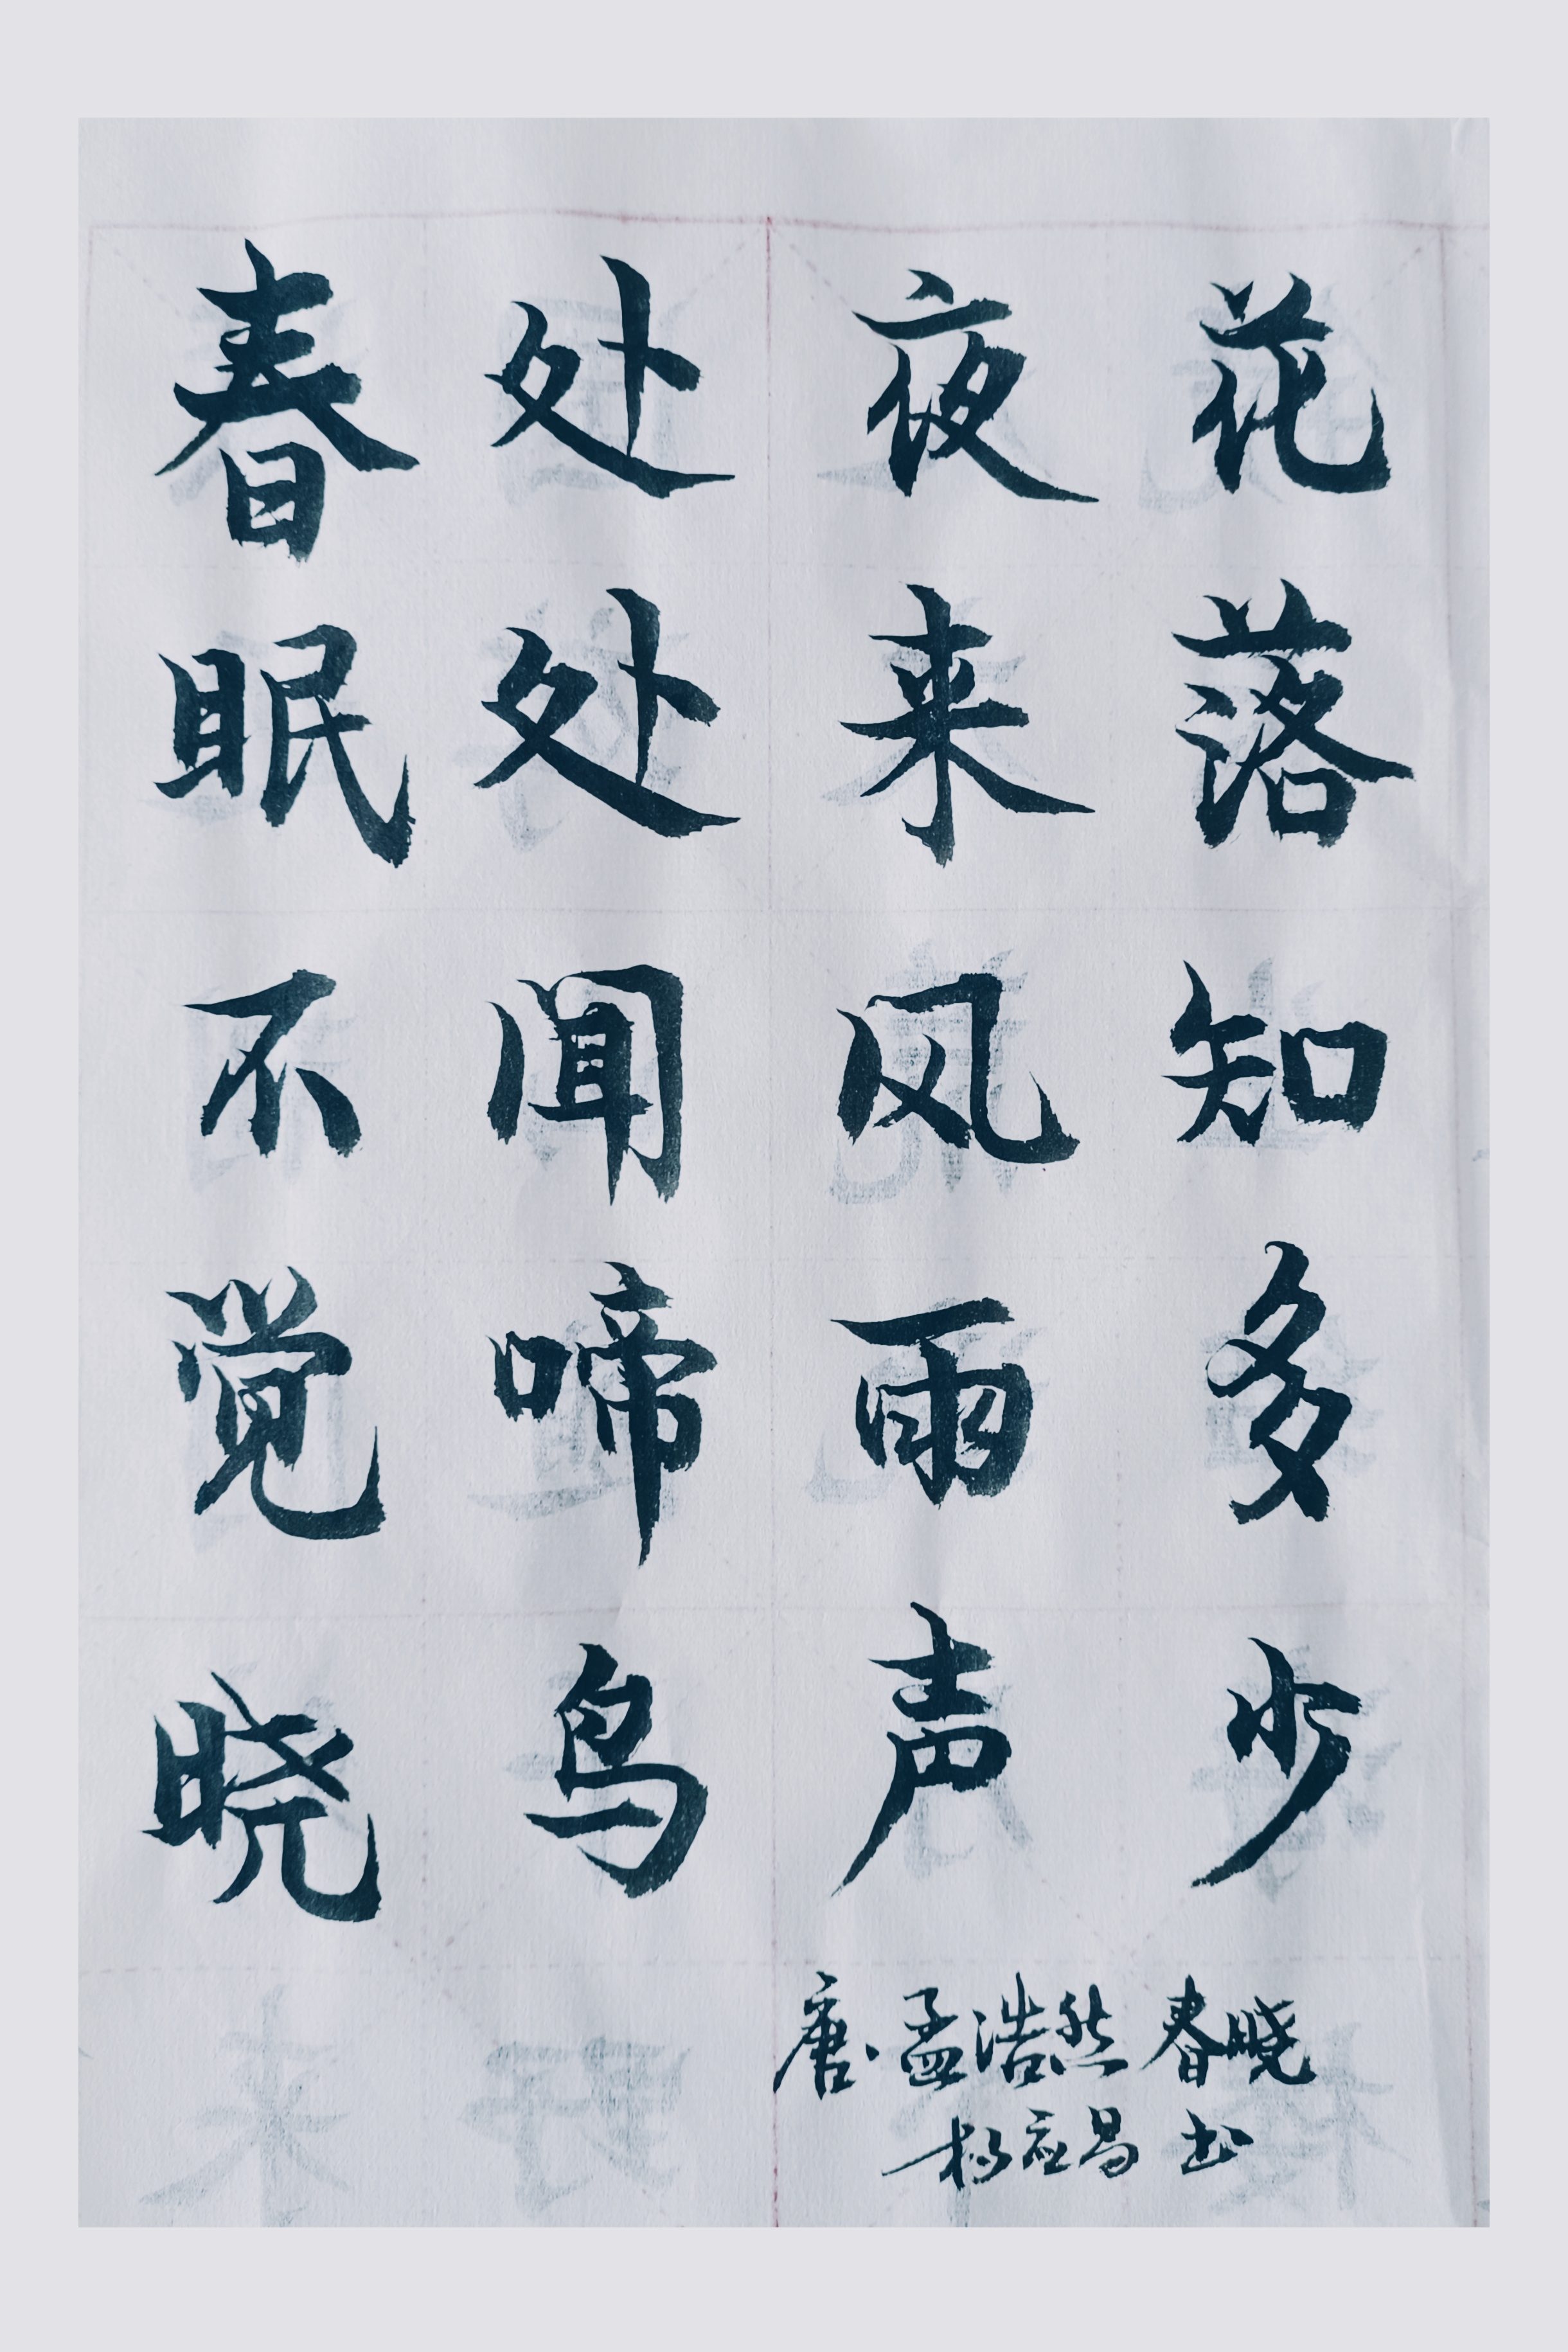 春眠不觉晓
处处闻啼鸟
夜来风雨声
花落知多少
唐·孟浩然 春晓
杨应昌 书